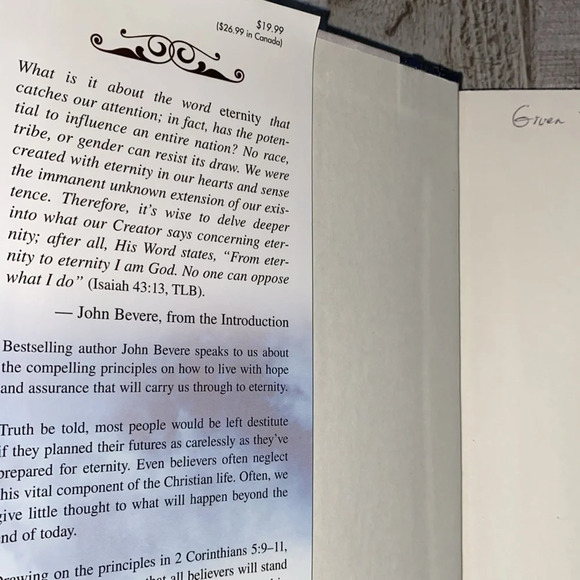 $19.99
($26.99 in Canada)
What is it about the word eternity that
catches our attention; in fact, has the poten-
tial to influence an entire nation? No race,
tribe, or gender can resist its draw. We were
created with eternity in our hearts and sense
the immanent unknown extension of our exis-
tence. Therefore, it's wise to delve deeper
into what our Creator says concerning eter-
nity; after all, His Word states, “From eter-
nity to eternity I am God. No one can oppose
what I do” (Isaiah 43:13, TLB).
— John Bevere, from the Introduction
Bestselling author John Bevere speaks to us about
the compelling principles on how to live with hope
and assurance that will carry us through to eternity.
Truth be told, most people would be left destitute
if they planned their futures as carelessly as they've
prepared for eternity. Even believers often neglect
his vital component of the Christian life. Often, we
give little thought to what will happen beyond the
nd of today.
rawing on the principles in 2 Corinthians 5:9–11,
that all believers will stand
Given